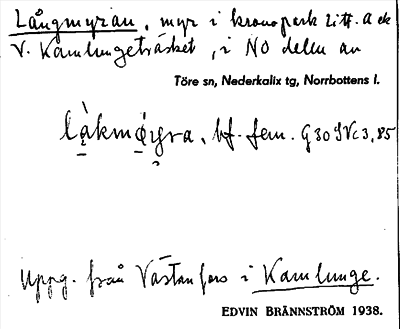 Långmyran, myr i kronopark litt. A de
V. Kamlungeträsket, i NO delen av
Töre sn, Nederkalix tg, Norrbottens l.
bf. fem. G30 SVc3,85
Uppg. från Västanfors i Kamlunge.
EDVIN BRÄNNSTRÖM 1938.